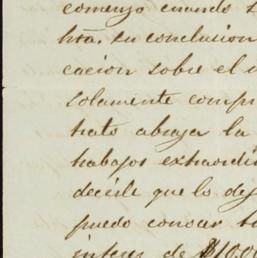 comenzo cuando
hta. su conclusion
cacion sobre el
solamente compr
trato abraza la
trabajos extraordi
decirle que lo dej
puedo conocer
de $10.00